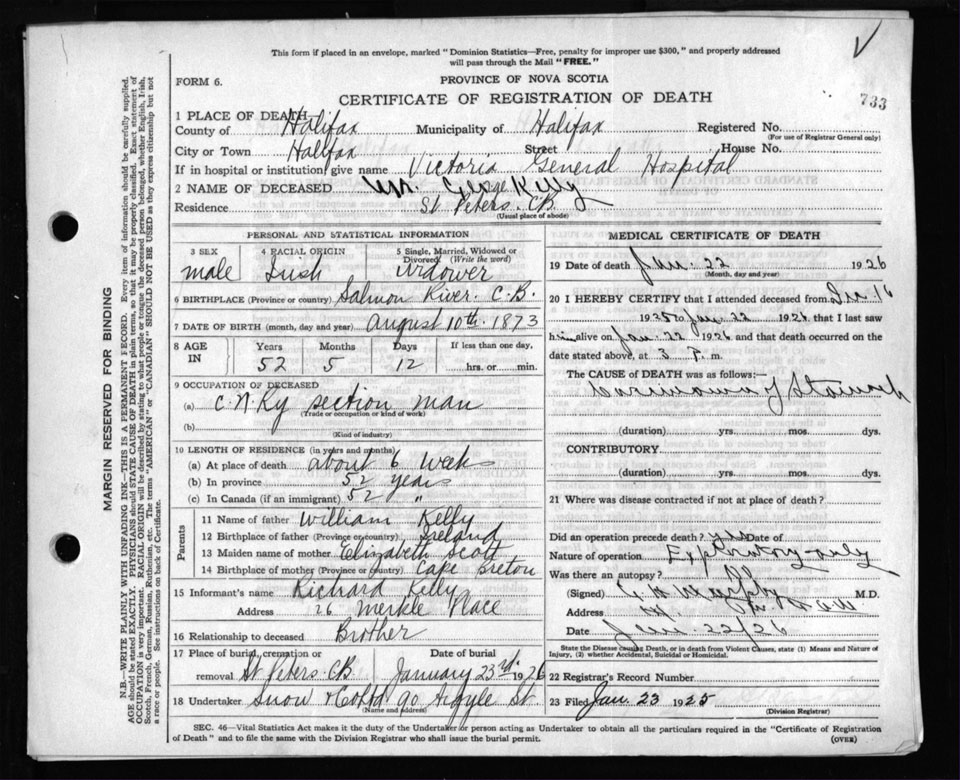 This form if placed in an envelope, marked "Dominion Statistics—Free, penalty for improper use $300," and properly addressed
will pass through the Mail "FREE."
FORM 6.
PROVINCE OF NOVA SCOTIA
CERTIFICATE OF REGISTRATION OF DEATH
733
1 PLACE OF DEATH
County of Halifax Municipality of Halifax Registered No.
(For use of Registrar General only)
City or Town Halifax Street House No.
If in hospital or institution give name Victoria General Hospital
2 NAME OF DECEASED George Kelly
Residence St Peters. C.B.
(Usual place of abode)
PERSONAL AND STATISTICAL INFORMATION
3 SEX male
4 RACIAL ORIGIN Irish
5 Single, Married, Widowed or Divorced (Write the word) widower
6 BIRTHPLACE (Province or country) Salmon River. C.B.
7 DATE OF BIRTH (month, day and year) August 10th. 1873
8 AGE IN Years Months Days If less than one day,
52 5 12 hrs. or min.
9 OCCUPATION OF DECEASED
(a) C N Ry section man
(Trade or occupation or kind of work)
(b)
(Kind of industry)
10 LENGTH OF RESIDENCE (in years and months)
(a) At place of death about 6 weeks
(b) In province 52 years
(c) In Canada (if an immigrant) 52 "
Parents
11 Name of father William Kelly
12 Birthplace of father (Province or country) Ireland
13 Maiden name of mother Elizabeth Scott
14 Birthplace of mother (Province or country) Cape Breton
15 Informant's name Richard Kelly
Address 26 Merkle Place
16 Relationship to deceased Brother
17 Place of burial, cremation or removal St Peters. CB
Date of burial January 23rd. 1926
18 Undertaker Snow & Co Ltd 90 Argyle St.
(Name and address)
MEDICAL CERTIFICATE OF DEATH
19 Date of death Jan. 22 1926
(Month, day and year)
20 I HEREBY CERTIFY that I attended deceased from Dec. 16
1925 to Jan. 22 1926 that I last saw
him alive on Jan. 22 1926 and that death occurred on the
date stated above, at 3 P. m.
The CAUSE of DEATH was as follows:—
Carcinoma of Stomach
(duration) yrs. mos. dys.
CONTRIBUTORY
(duration) yrs. mos. dys.
21 Where was disease contracted if not at place of death?
Did an operation precede death? yes Date of
Nature of operation Exploratory only
Was there an autopsy?
(Signed) Murphy M.D.
Address
Date Jan 22/26
State the Disease causing Death, or in death from Violent Causes, state (1) Means and Nature of
Injury, (2) whether Accidental, Suicidal or Homicidal.
22 Registrar's Record Number
23 Filed Jan. 23 1925
(Division Registrar)
SEC. 46—Vital Statistics Act makes it the duty of the Undertaker or person acting as Undertaker to obtain all the particulars required in the "Certificate of Registration
of Death" and to file the same with the Division Registrar who shall issue the burial permit.
(OVER)
MARGIN RESERVED FOR BINDING
N.B.—WRITE PLAINLY WITH UNFADING INK—THIS IS A PERMANENT RECORD. Every item of information should be carefully supplied.
AGE should be stated EXACTLY. PHYSICIANS should STATE CAUSE OF DEATH in plain terms, so that it may be properly classified. Exact statement of
OCCUPATION is very important. RACIAL ORIGIN will be described by stating to what people or tongue the deceased person belonged, whether English, Irish,
Scotch, French, German, Russian, Ruthenian, etc. The terms "AMERICAN" or "CANADIAN" SHOULD NOT BE USED as they express citizenship but not
a race or people. See instructions on back of Certificate.